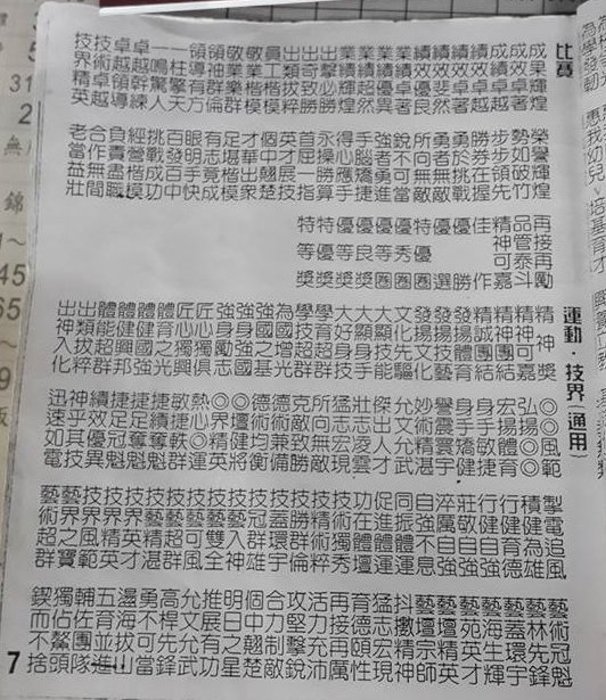 比賽
成果輝煌
成效卓著
成績卓越
績效卓越
績效斐然
績效卓著
業績優異
業績超然
業績輝煌
出擊必勝
出奇致勝
出類拔粹
員工楷模
敬業楷模
敬業樂群
領導有方
一柱擎天
一鳴驚人
卓越幹練
卓越領導
技術卓越
技界精英
榮譽輝煌
勢如破竹
步步領先
勝券在握
勇於挑戰
所向無敵
銳不可當
手腦矯捷
得心應手
永操勝算
首屈一指
英才展技
個中翹楚
才華出眾
足堪楷模
有志竟成
眼明手快
百發百中
挑戰成功
經營楷模
負責盡職
合作無間
老當益壯
再接再勵
品管泰斗
精神可嘉
佳作
優勝
優選
特優圈
優秀圈
優等圈
優良獎
優等獎
特優獎
特等獎
運動・技界(通用)
精神獎
精神可嘉
精神團結
精誠團結
發揚體育
發揚技藝
發揚文化
文化先驅
大顯技能
大顯身手
大好身手
學技超群
為國增光
強國之基
強身強國
匠心獨具
體育之光
體健國強
體健興邦
體能超群
出類拔粹
出神入化
◎◎風範
弘揚◎育
宏揚體育
身手敏捷
身手矯健
譽震寰宇
允文允武
傑出人才
壯志凌雲
所向無敵
克敵致勝
德術兼備
德術均衡
◎壇健將
◎界精英
熱心◎運
敏捷軼群
捷足奪魁
績效優異
神乎其技
迅速如電
掣電追風
行健自強
莊敬自強
淬厲自強
自強不息
促進體運
功在體壇
技術獨秀
技藝入神
技藝雙全
技藝可風
技藝超群
技藝精湛
技界精英
技界典範
藝界之寶
藝術超群
藝林先鋒
藝蓋寰宇
藝海生輝
藝苑英才
藝壇精英
藝壇宗師
抖擻精神
育德頤性
再接再厲
活力充沛
攻堅擊銳
合力制敵
個中翹楚
明日之星
推展有功
允文允武
高桿先鋒
勇不可當
盪海拔山
五育並進
輔佐團隊
獨佔鰲頭
鍥而不捨
7